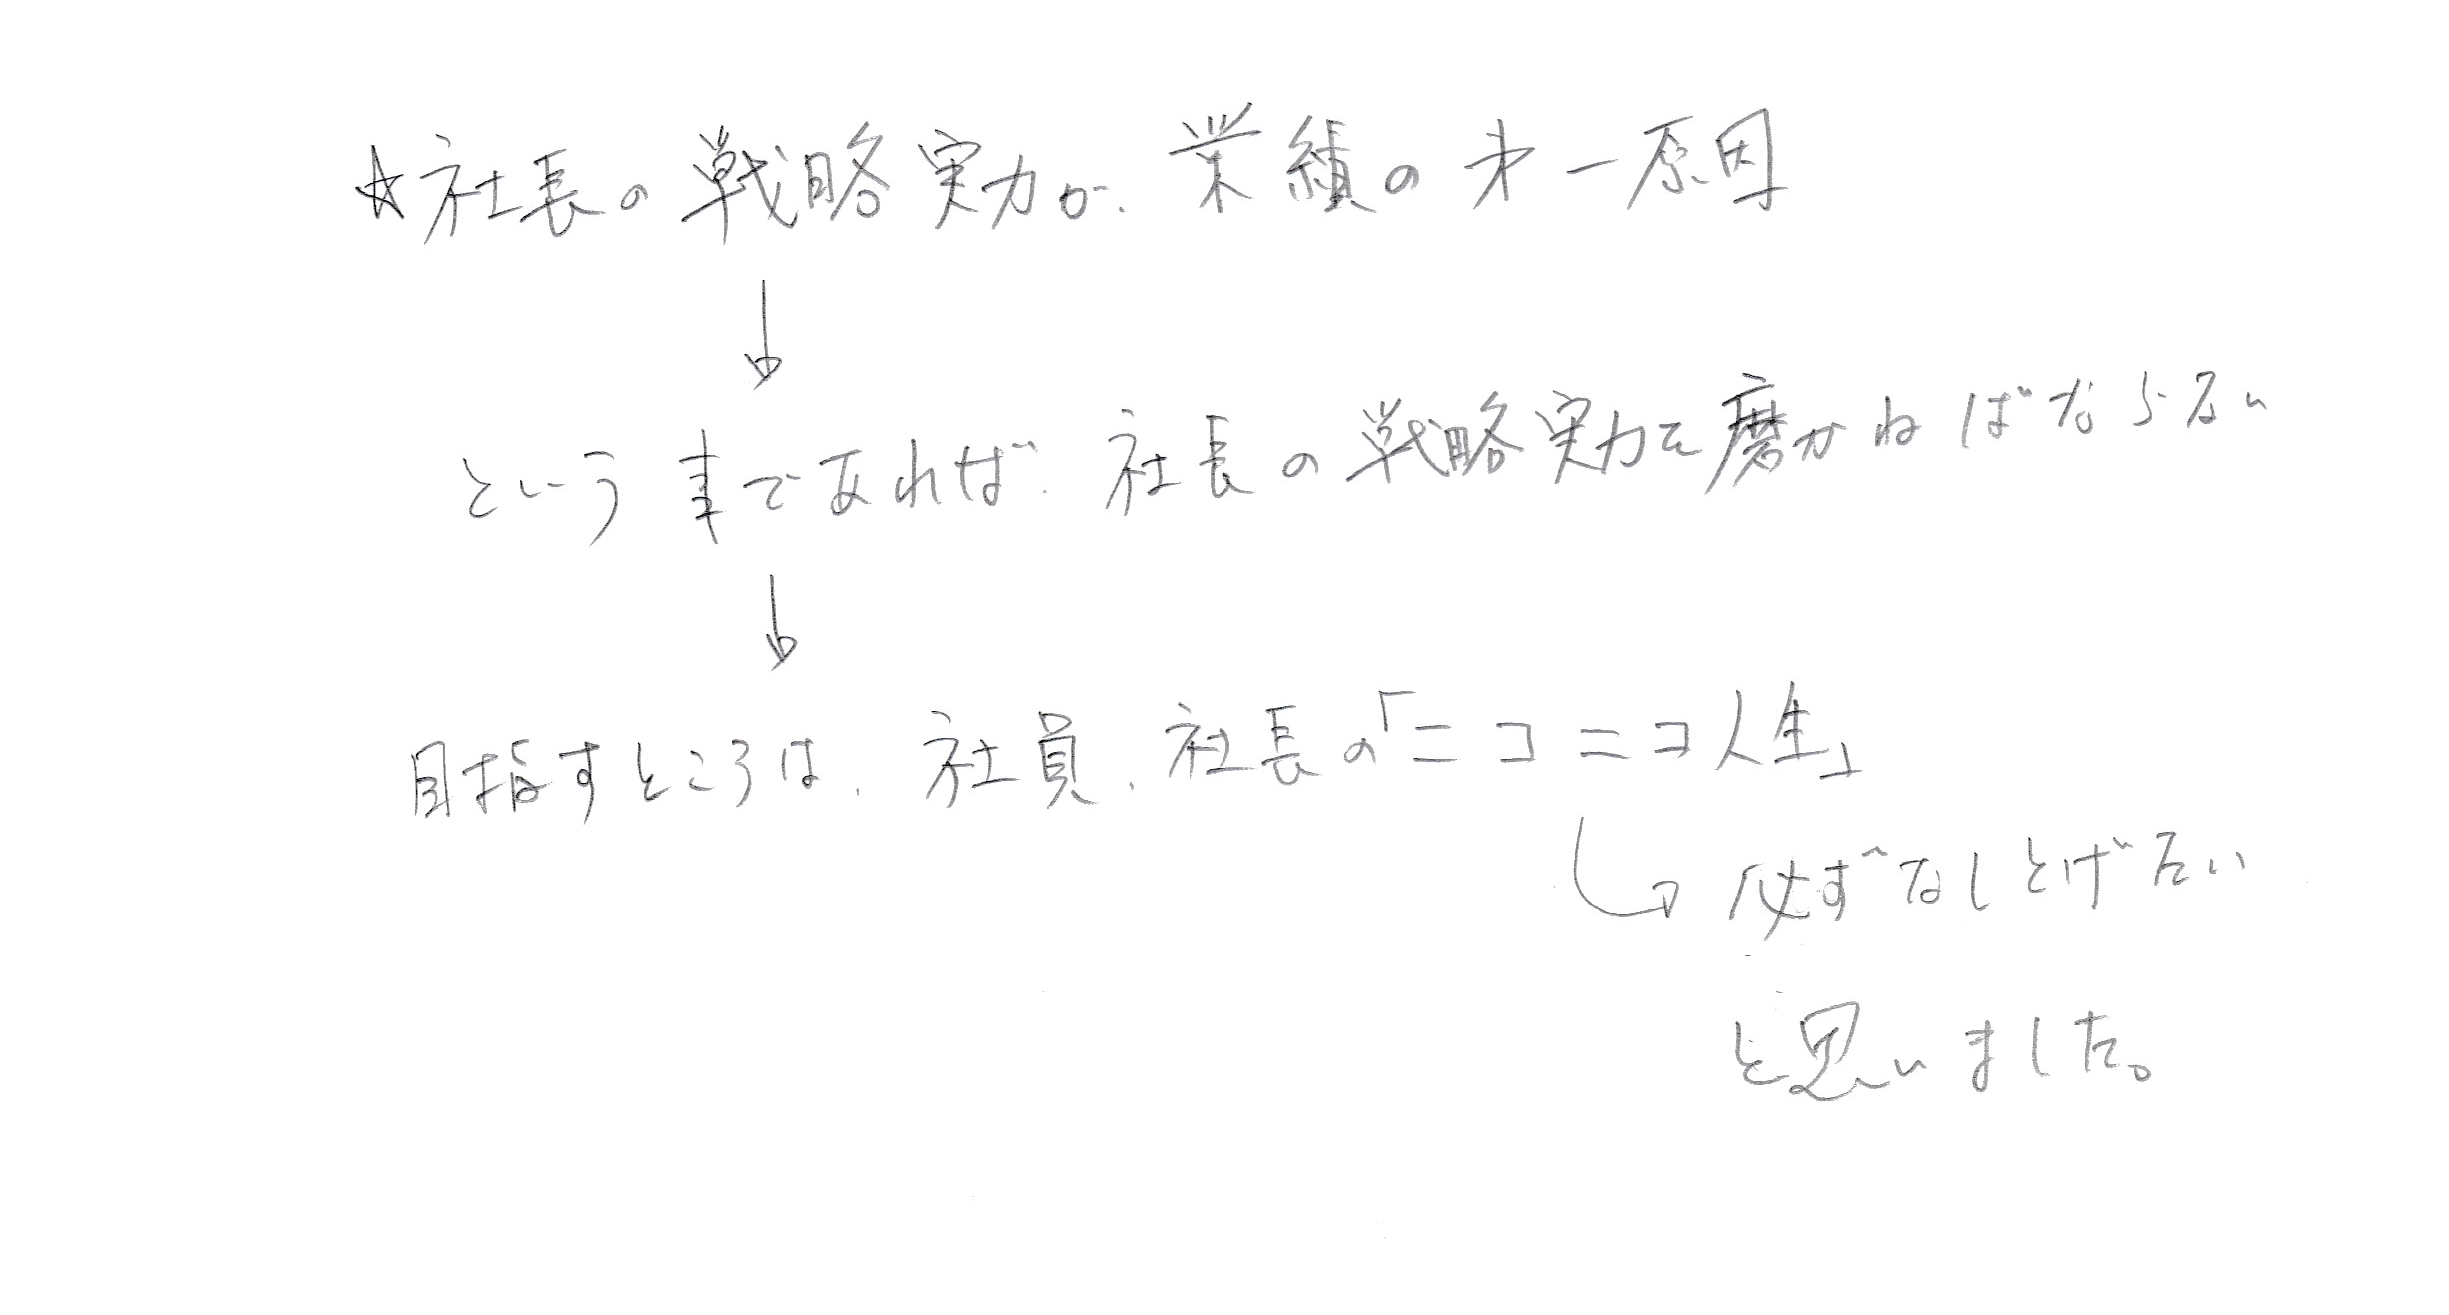 ☆社長の戦略実力が、業績の才一原因
↓
という事であれば、社長の戦略実力を磨かねばならない
↓
目指すところは、社員、社長の「ニコニコ人生」
↳必ずなしとげたい
と思いました。